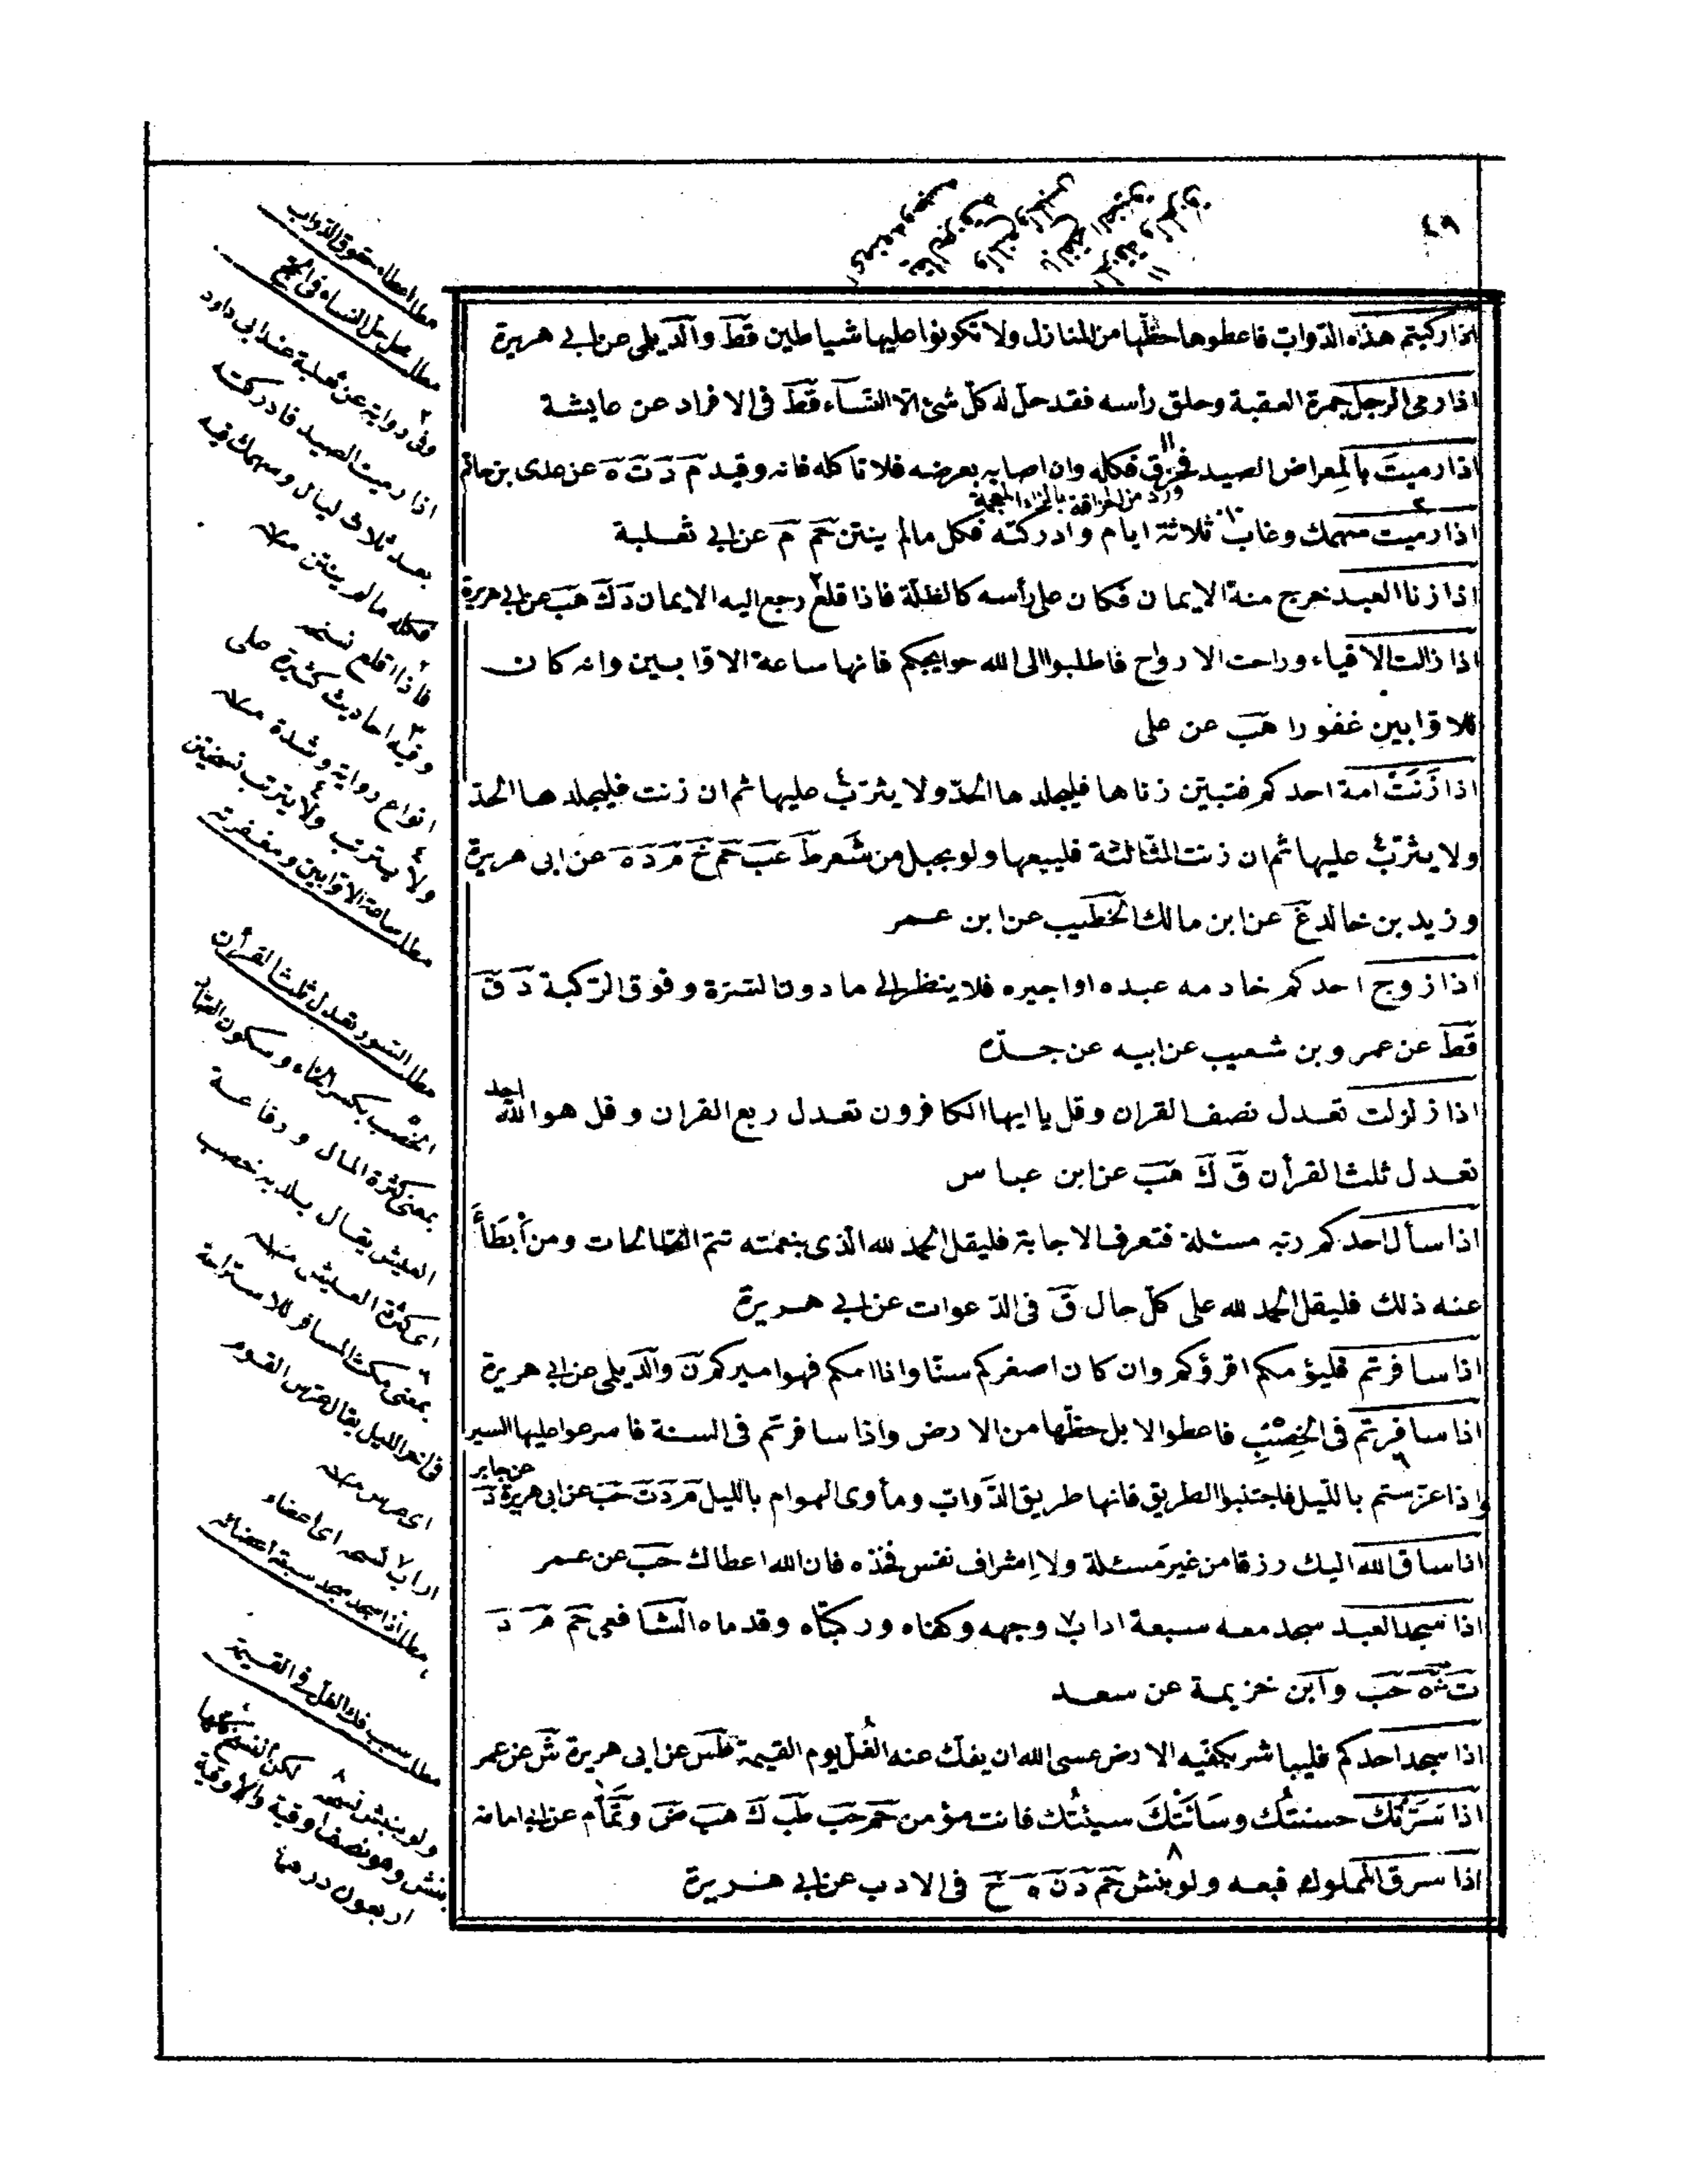 ٤٩
اذا ركبتم هذه الدّوابّ فاعطوها حظّها من المنازل ولا تكونوا عليها شياطين قط والديلمى عن ابى هريرة
اذا رمى الرجل جمرة العقبة وحلق رأسه فقد حلّ له كلّ شئ الّا النّساء قط فى الافراد عن عايشة
اذا رميتَ بالمِعراض الصيد فخزق فكله وان اصابه بعرضه فلا تاكله فانه وقيد م د ت ه عن عدى بن حاتم
اذا رميت سهمك وغاب ثلاثة ايام وادركته فكل مالم ينتن حم م عن ابى ثعلبة
اذا زنا العبد خرج منه الايمان فكان على رأسه كالظلّة فاذا قلع رجع اليه الايمان د ك هب عن ابى هريرة
اذا زالت الافياء وراحت الارواح فاطلبوا الى الله حوايجكم فانها ساعة الاوّابين وانه كان
للاوّابين غفورا هب عن على
اذا زَنَتْ امة احدكم فتبيّن زناها فليجلدها الحدّ ولا يثرّب عليها ثم ان زنت فليجلدها الحدّ
ولا يثرّب عليها ثم ان زنت الثّالثة فليبعها ولو بحبل من شَعر ط عب حم خ م د ه عن ابى هريرة
وزيد بن خالد غ عن ابن مالك الخطيب عن ابن عمر
اذا زوج احدكم خادمه عبده او اجيره فلا ينظر الى ما دون السّرّة وفوق الرّكبة د ق
قط عن عمرو بن شعيب عن ابيه عن جدّه
اذا زلزلت تعدل نصف القران وقل يا ايها الكافرون تعدل ربع القران وقل هو الله احد
تعدل ثلث القرأن ق ك هب عن ابن عباس
اذا سأل احدكم ربّه مسئلة فتعرف الاجابة فليقل الحمد لله الّذى بنعمته تتمّ الصّالحات ومن أبطَأَ
عنه ذلك فليقل الحمد لله على كلّ حال ق فى الدّعوات عن ابى هريرة
اذا سافرتم فليؤمكم اقرؤكم وان كان اصغركم سنّا واذا امكم فهو اميركم ن والديلمى عن ابى هريرة
اذا سافرتم فى الخِصْبِ فاعطوا الابل حظّها من الارض واذا سافرتم فى السنة فاسرعوا عليها السير
واذا عرّستم بالليل فاجتنبوا الطريق فانها طريق الدّوابّ ومأوى الهوام بالليل م د ت حب عن ابى هريرة د عن جابر
اذا ساق الله اليك رزقا من غير مسئلة ولا اشراف نفس فخذه فان الله اعطاك حب عن عمر
اذا سجد العبد سجد معه سبعة اداب وجهه وكفاه وركبتاه وقدماه الشافعى حم م د
ت ن ه حب وابن خزيمة عن سعد
اذا سجد احدكم فليباشر بكفيه الارض عسى الله ان يفك عنه الغُلّ يوم القيمة طس عن ابى هريرة ش عن عمر
اذا سَرّتك حسنتُك وسائتْكَ سيئتُك فانت مؤمن حم حب طب ك هب ض وتمّام عن ابى امامة
اذا سرق المملوك فبعه ولو بنش حم د ن ه خ فى الادب عن ابى هريرة
ورد من الخزاقة بالخاء المعجمة
مطلب اعطاء حقوق الدواب
مطلب حل النساء فى الحج
وفى رواية عن ثعلبة عند ابى داود
اذا رميت الصيد فادركته
بعد ثلاث ليال وسهمك فيه
فكله مالم ينتن منه
فاذا اقلع نسخه
وفيه احاديث كثيرة على
انواع رواية وشدة منه
ولا يترب ولا يترب نسختين
مطلب ساعة الاوّابين ومغفرته
مطلب السور تعدل ثلث القرأن
الخصب بكسر الخاء وسكون الصاد
بمعنى كثرة المال ورفاعة
العيش يقال بلد به خصب
اى كثرة العيش منه
بمعنى مكث المسافر للاستراحة
فى اخر الليل يقال عرّس القوم
اى عرس منه
اراب نسخه اى اعضاء
مطلب اذا سجد سجد سبعة اعضائه
مطلب سبب فك الغل فى القيمة
ولو بنش نسخه
بنش وهو نصف اوقية والاوقية
اربعون درهما